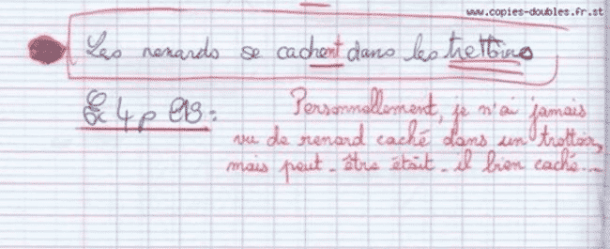 www.copies-doubles.fr.st
Les renards se cachent dans les trottoirs
Ex 4 p 213 : Personnellement, je n'ai jamais
vu de renard caché dans un trottoir,
mais peut-être était-il bien caché...